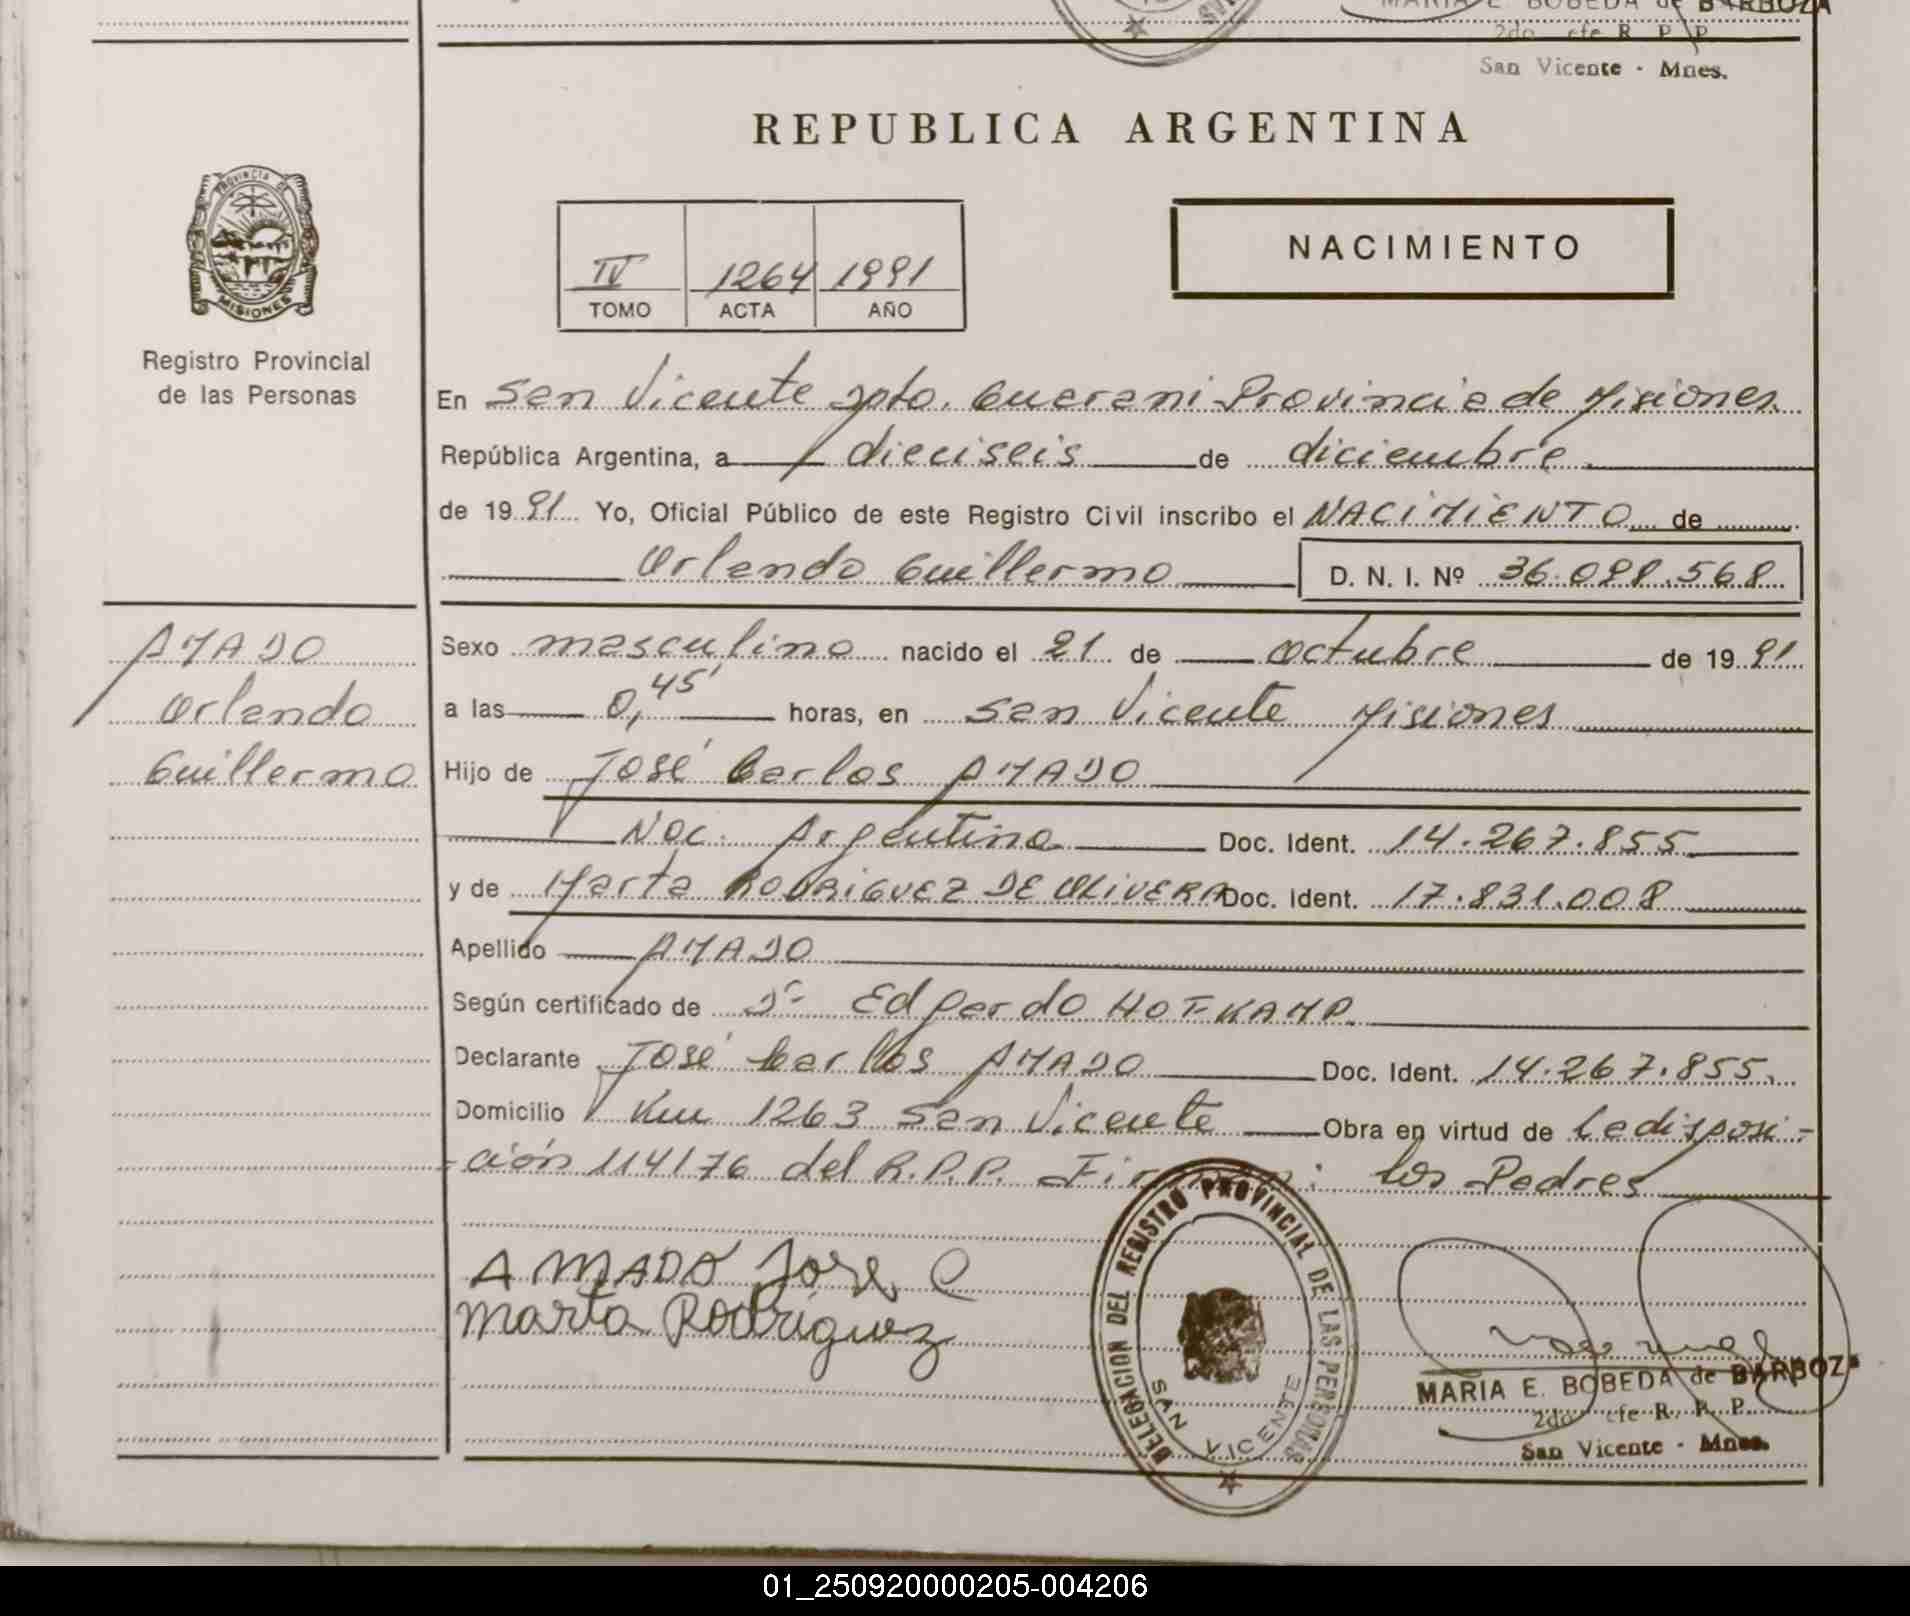 MARIA E. BOBEDA de BARBOZA
2do efe R. P. P.
San Vicente - Mnes.
REPUBLICA ARGENTINA
PROVINCIA DE
MISIONES
Registro Provincial
de las Personas
IV 1264 1991
TOMO ACTA AÑO
NACIMIENTO
En San Vicente Dpto. Guarani Provincia de Misiones
República Argentina, a dieciseis de diciembre
de 1991 Yo, Oficial Público de este Registro Civil inscribo el NACIMIENTO de
Orlando Guillermo D. N. I. Nº 36.099.568
AMADO
Orlando
Guillermo
Sexo masculino nacido el 21 de octubre de 1991
a las 0,45' horas, en San Vicente Misiones
Hijo de José Carlos AMADO
Nac. Argentina Doc. Ident. 14.267.855
y de Marta RODRIGUEZ DE OLIVERA Doc. Ident. 17.831.008
Apellido AMADO
Según certificado de Dr Edgardo HOFKAMP
Declarante José Carlos AMADO Doc. Ident. 14.267.855.
Domicilio Km 1263 San Vicente Obra en virtud de la disposi-
-ción 114/76 del R.P.P. Firman: los Padres
AMADO Jose C
Marta Rodriguez
DELEGACION DEL REGISTRO PROVINCIAL DE LAS PERSONAS
SAN VICENTE
MARIA E. BOBEDA de BARBOZA
2do efe R. P. P.
San Vicente - Mnes.
01_250920000205-004206